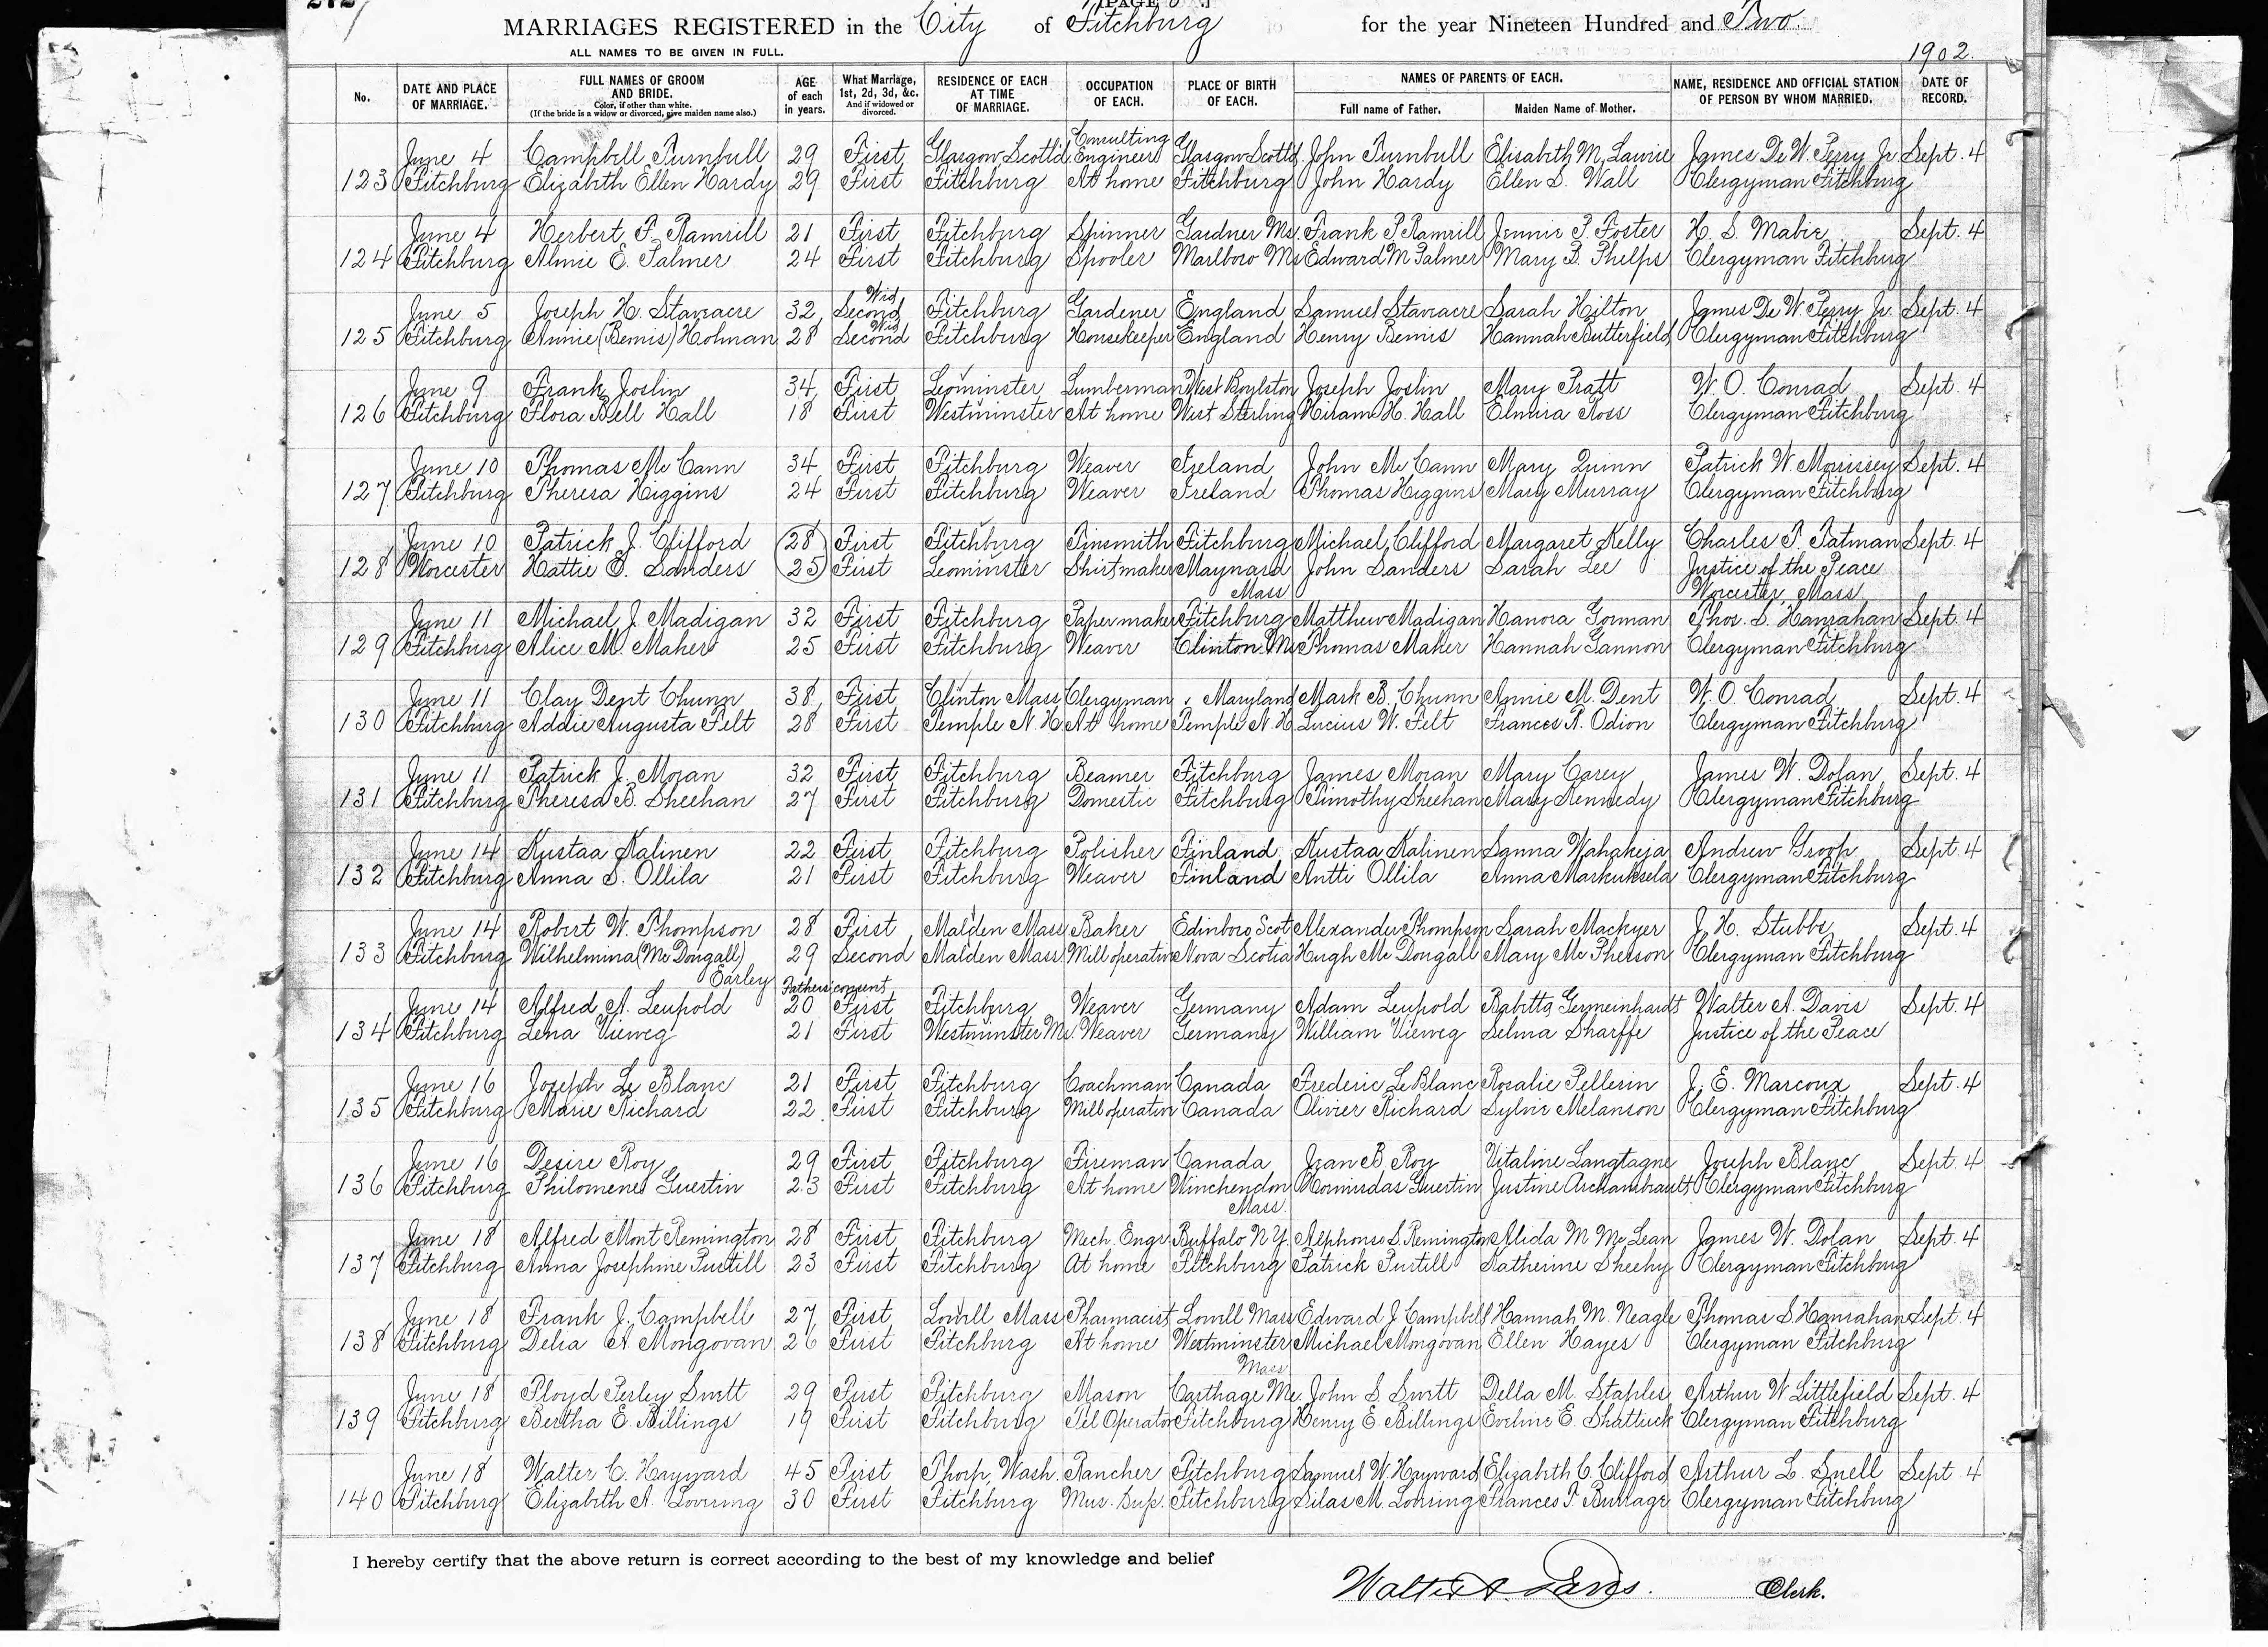 272
MARRIAGES REGISTERED in the City of Fitchburg for the year Nineteen Hundred and Two.
ALL NAMES TO BE GIVEN IN FULL.
1902.
No. DATE AND PLACE OF MARRIAGE. FULL NAMES OF GROOM AND BRIDE. Color, if other than white. (If the bride is a widow or divorced, give maiden name also.) AGE of each in years. What Marriage, 1st, 2d, 3d, &c. And if widowed or divorced. RESIDENCE OF EACH AT TIME OF MARRIAGE. OCCUPATION OF EACH. PLACE OF BIRTH OF EACH. NAMES OF PARENTS OF EACH. Full name of Father. Maiden Name of Mother. NAME, RESIDENCE AND OFFICIAL STATION OF PERSON BY WHOM MARRIED. DATE OF RECORD.
June 4 Campbell Turnbull 29 First Glasgow Scotl'd Consulting Engineer Glasgow Scotl'd John Turnbull Elisabeth M. Lawrie James De W. Perry Jr Sept. 4
123 Fitchburg Elizabeth Ellen Hardy 29 First Fitchburg At home Fitchburg John Hardy Ellen S. Wall Clergyman Fitchburg
June 4 Herbert F. Ramrill 21 First Fitchburg Spinner Gardner Ms. Frank P Ramrill Jennie P. Foster H. S. Mabie Sept. 4
124 Fitchburg Almie E. Palmer 24 First Fitchburg Spooler Marlboro Ms Edward M Palmer Mary B. Phelps Clergyman Fitchburg
June 5 Joseph H. Staveacre 32 Second Wid Fitchburg Gardener England Samuel Staveacre Sarah Hilton James De W. Perry Jr. Sept. 4
125 Fitchburg Annie (Bemis) Holman 28 Second Wid Fitchburg Housekeeper England Henry Bemis Hannah Butterfield Clergyman Fitchburg
June 9 Frank Joslin 34 First Leominster Lumberman West Boylston Joseph Joslin Mary Pratt W. O. Conrad Sept. 4
126 Fitchburg Flora Bell Hall 18 First Westminster At home West Sterling Hiram H. Hall Elmira Ross Clergyman Fitchburg
June 10 Thomas Mc Cann 34 First Fitchburg Weaver Ireland John Mc Cann Mary Quinn Patrick W. Morrissey Sept. 4
127 Fitchburg Theresa Higgins 24 First Fitchburg Weaver Ireland Thomas Higgins Mary Murray Clergyman Fitchburg
June 10 Patrick J. Clifford 28 First Fitchburg Tinsmith Fitchburg Michael Clifford Margaret Kelly Charles T. Tatman Sept. 4
128 Worcester Hattie E. Sanders 25 First Leominster Shirtmaker Maynard Mass John Sanders Sarah Lee Justice of the Peace
Worcester, Mass.
June 11 Michael J. Madigan 32 First Fitchburg Paper maker Fitchburg Matthew Madigan Hanora Gorman Thos. S. Hanrahan Sept. 4
129 Fitchburg Alice M. Maher 25 First Fitchburg Weaver Clinton Ms Thomas Maher Hannah Gannon Clergyman Fitchburg
June 11 Clay Dent Chunn 38 First Clinton Mass Clergyman Maryland Mark B. Chunn Annie M. Dent W. O. Conrad Sept. 4
130 Fitchburg Addie Augusta Felt 28 First Temple N. H. At home Temple N. H. Lucius W. Felt Frances R. Odion Clergyman Fitchburg
June 11 Patrick J. Moran 32 First Fitchburg Beamer Fitchburg James Moran Mary Carey James W. Dolan Sept. 4
131 Fitchburg Theresa B. Sheehan 27 First Fitchburg Domestic Fitchburg Timothy Sheehan Mary Kennedy Clergyman Fitchburg
June 14 Kustaa Kalinen 22 First Fitchburg Polisher Finland Kustaa Kalinen Sanna Wahakeja Andrew Groop Sept. 4
132 Fitchburg Anna S. Ollila 21 First Fitchburg Weaver Finland Antti Ollila Anna Markuksela Clergyman Fitchburg
June 14 Robert W. Thompson 28 First Malden Mass Baker Edinboro Scot Alexander Thompson Sarah Mackyer J. H. Stubbs Sept. 4
133 Fitchburg Wilhelmina (Mc Dougall) 29 Second Malden Mass Mill operative Nova Scotia Hugh Mc Dougall Mary Mc Pherson Clergyman Fitchburg
Earley Fathers consent
June 14 Alfred A. Leupold 20 First Fitchburg Weaver Germany Adam Leupold Babitta Germeinhardt Walter A. Davis Sept. 4
134 Fitchburg Lena Vieweg 21 First Westminster Ms. Weaver Germany William Vieweg Selma Sharffe Justice of the Peace
June 16 Joseph Le Blanc 21 First Fitchburg Coachman Canada Frederic Le Blanc Rosalie Pellerin J. E. Marcoux Sept. 4
135 Fitchburg Marie Richard 22 First Fitchburg Mill operative Canada Olivier Richard Sylvie Melanson Clergyman Fitchburg
June 16 Desire Roy 29 First Fitchburg Fireman Canada Jean B. Roy Vitaline Langtagne Joseph Blanc Sept. 4
136 Fitchburg Philomene Guertin 23 First Fitchburg At home Winchendon Mass. Hormisdas Guertin Justine Archambeault Clergyman Fitchburg
June 18 Alfred Mont Remington 28 First Fitchburg Mech. Engr. Buffalo N Y Alphonso S. Remington Alida M Mc Lean James W. Dolan Sept. 4
137 Fitchburg Anna Josephine Purtill 23 First Fitchburg At home Fitchburg Patrick Purtill Katherine Sheehy Clergyman Fitchburg
June 18 Frank J. Campbell 27 First Lowell Mass Pharmacist Lowell Mass Edward J Campbell Hannah M. Neagle Thomas S. Hanrahan Sept. 4
138 Fitchburg Delia A Mongovan 26 First Fitchburg At home Westminster Mass Michael Mongovan Ellen Hayes Clergyman Fitchburg
June 18 Floyd Perley Swett 29 First Fitchburg Mason Carthage Me. John S. Swett Della M. Staples Arthur W Littlefield Sept. 4
139 Fitchburg Bertha E. Billings 19 First Fitchburg Tel Operator Fitchburg Henry E. Billings Eveline E. Shattuck Clergyman Fitchburg
June 18 Walter C. Hayward 45 First Thorp, Wash. Rancher Fitchburg Samuel W. Hayward Elizabeth C. Clifford Arthur L. Snell Sept 4
140 Fitchburg Elizabeth A. Lovering 30 First Fitchburg Mus. Sup. Fitchburg Silas M. Lovering Frances F. Burrage Clergyman Fitchburg
I hereby certify that the above return is correct according to the best of my knowledge and belief
Walter A. Davis. Clerk.